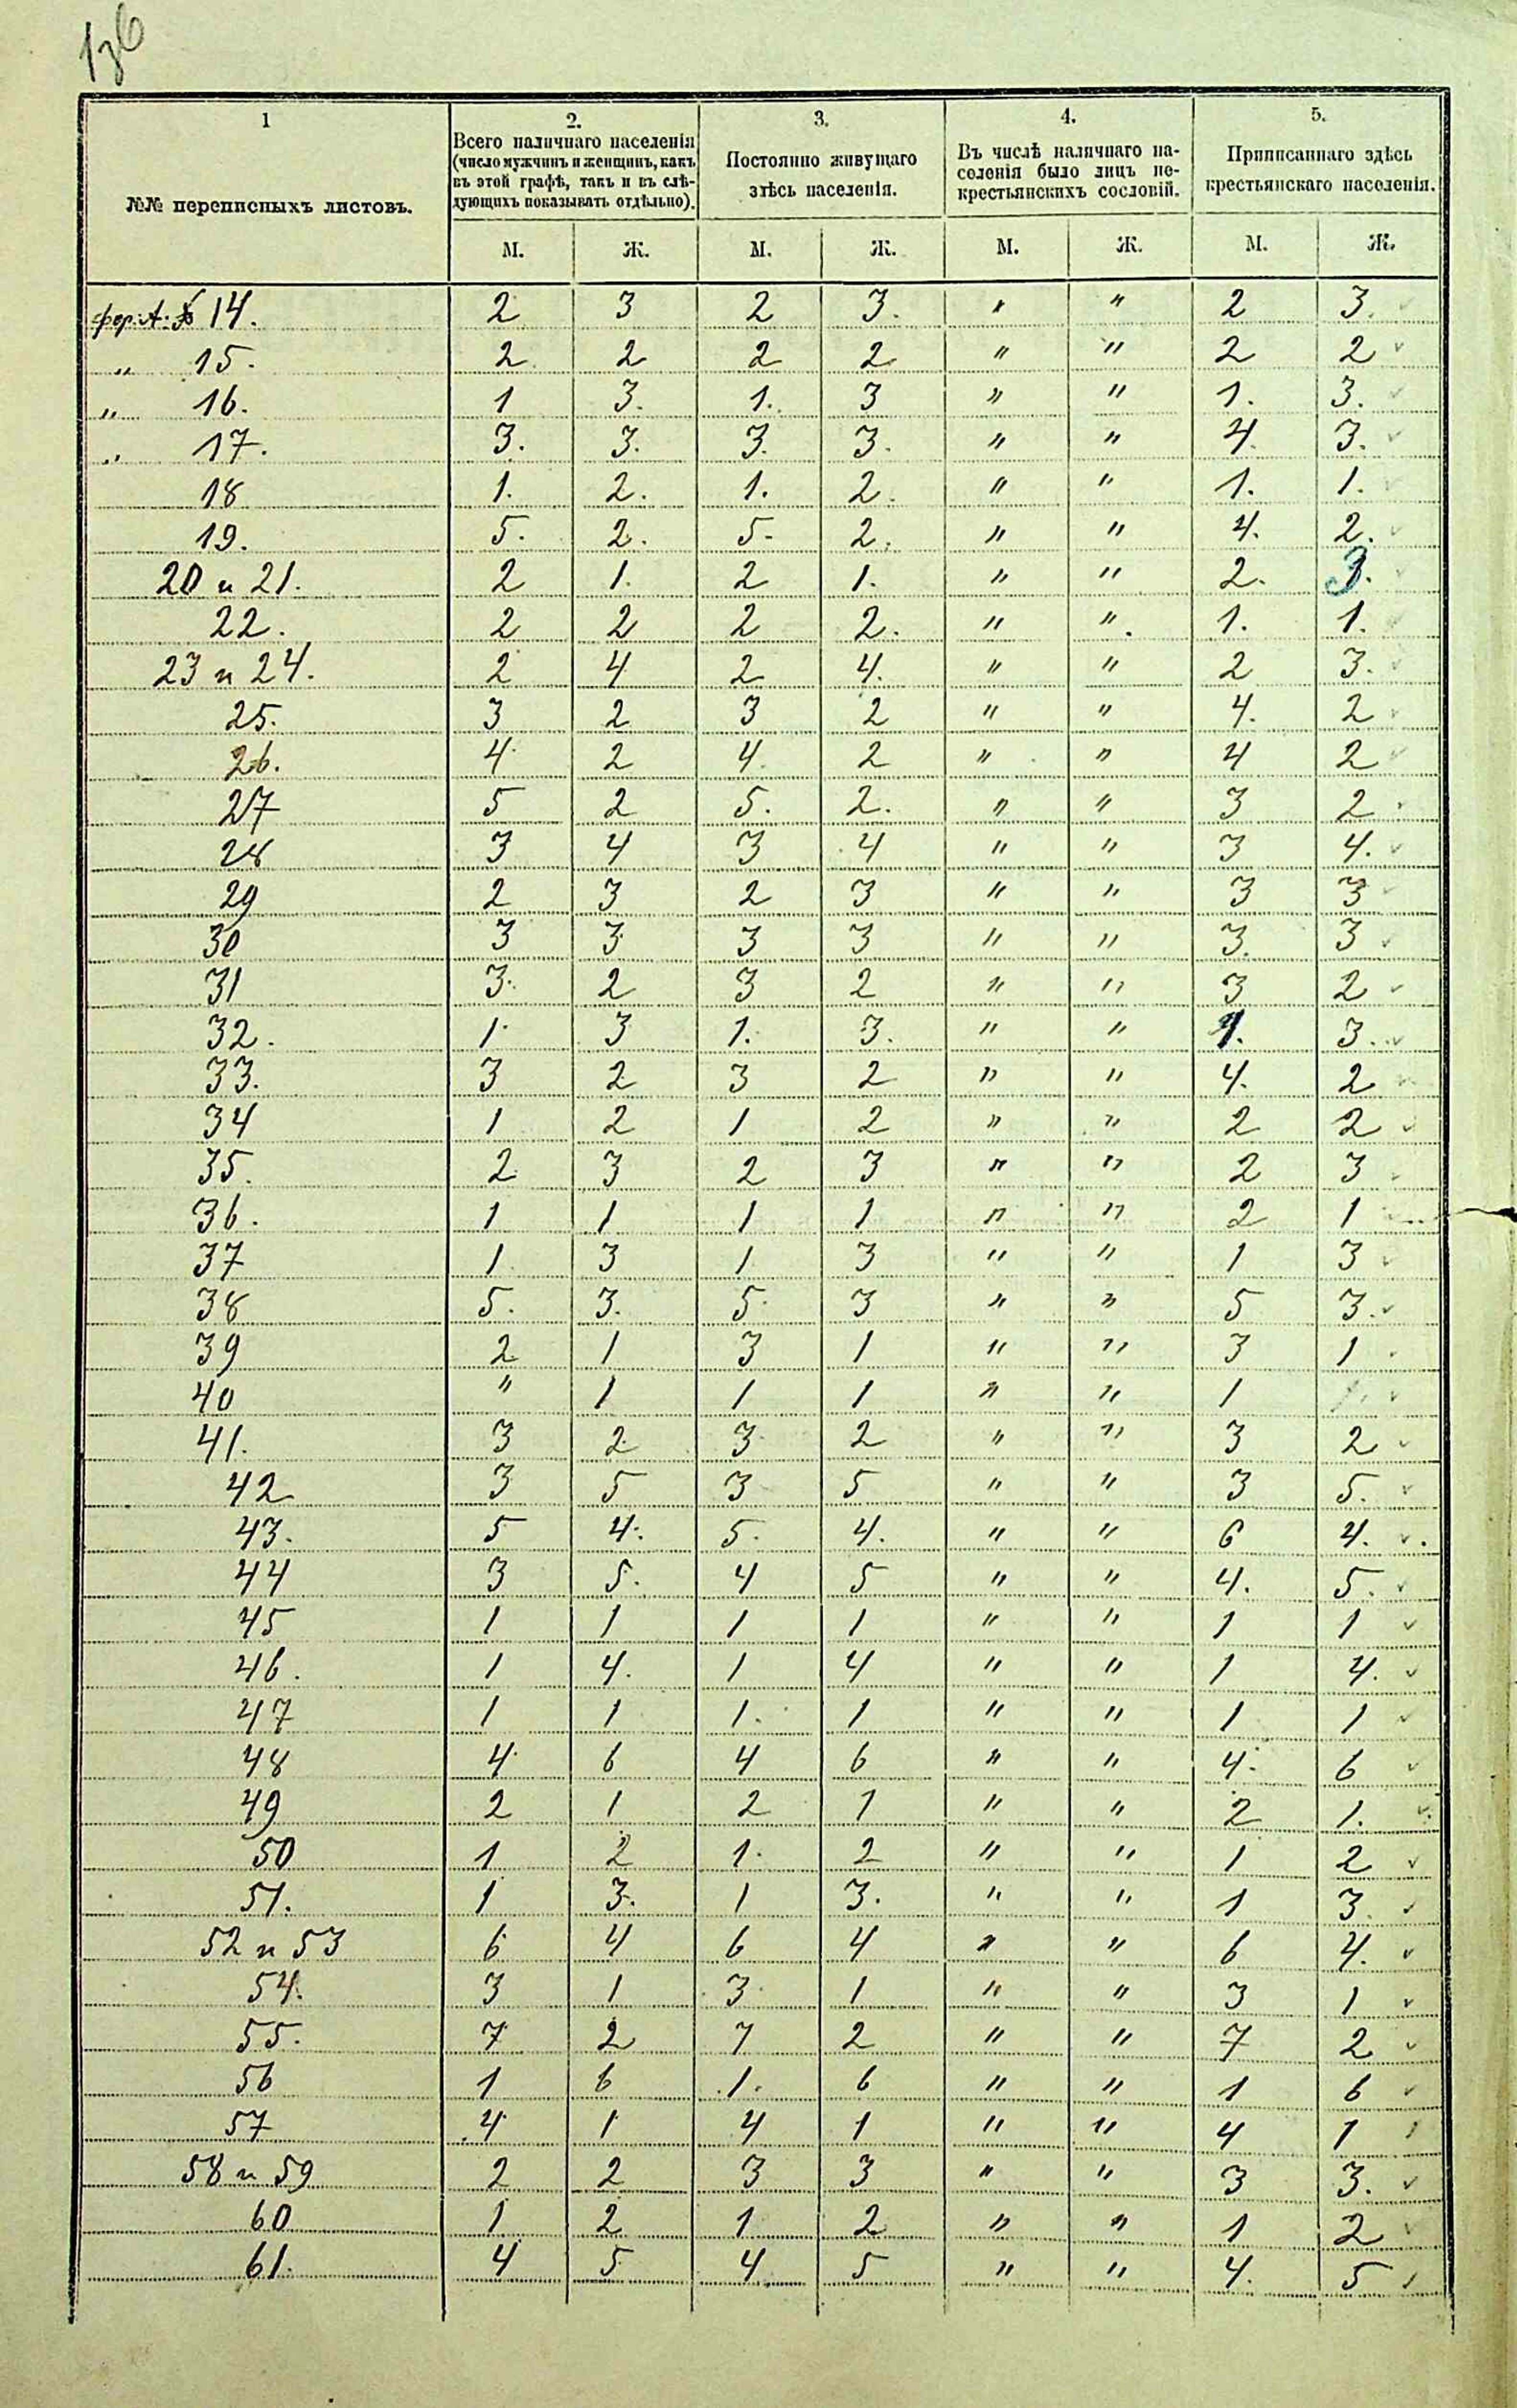 136
1 2. 3. 4. 5.
№№ переписныхъ листовъ.
Всего наличнаго населенія
(число мужчинъ и женщинъ, какъ
въ этой графѣ, такъ и въ слѣ-
дующихъ показывать отдѣльно).
Постоянно живущаго
здѣсь населенія.
Въ числѣ наличнаго на-
селенія было лицъ не-
крестьянскихъ сословій.
Приписаннаго здѣсь
крестьянскаго населенія.
М. Ж. М. Ж. М. Ж. М. Ж.
фор. А. № 14. 2 3 2 3. " " 2 3.
" 15. 2 2 2 2 " " 2 2
" 16. 1 3. 1. 3 " " 1. 3.
" 17. 3. 3. 3. 3. " " 4. 3.
18 1. 2. 1. 2. " " 1. 1.
19. 5. 2. 5. 2. " " 4. 2.
20 и 21. 2 1. 2 1. " " 2. 3.
22. 2 2 2 2. " ". 1. 1.
23 и 24. 2 4 2 4. " " 2 3.
25. 3 2 3 2 " " 4. 2
26. 4 2 4. 2 " " 4 2
27 5 2 5. 2. " " 3 2
28 3 4 3 4 " " 3 4.
29 2 3 2 3 " " 3 3
30 3 3 3 3 " " 3. 3
31 3. 2 3 2 " " 3 2
32. 1. 3 1. 3. " " 1. 3.
33. 3 2 3 2 " " 4. 2
34 1 2 1 2 " " 2 2
35. 2 3 2 3 " " 2 3
36. 1 1 1 1 " " 2 1
37 1 3 1 3 " " 1 3
38 5. 3. 5. 3 " " 5 3.
39 2 1 3 1 " " 3 1
40 " 1 1 1 " " 1
41. 3 2 3 2 " " 3 2
42 3 5 3 5 " " 3 5.
43. 5 4. 5. 4. " " 6 4.
44 3 5. 4 5 " " 4. 5.
45 1 1 1 1 " " 1 1
46. 1 4. 1 4 " " 1 4.
47 1 1 1. 1 " " 1 1
48 4 6 4 6 " " 4. 6
49 2 1 2 1 " " 2 1.
50 1 2 1. 2 " " 1 2
51. 1 3. 1 3. " " 1 3.
52 и 53 6 4 6 4 " " 6 4.
54. 3 1 3 1 " " 3 1
55. 7 2 7 2 " " 7 2
56 1 6 1. 6 " " 1 6
57 4 1 4 1 " " 4 1
58 и 59 2 2 3 3 " " 3 3.
60 1 2 1 2 " " 1 2
61. 4 5 4 5 " " 4. 5